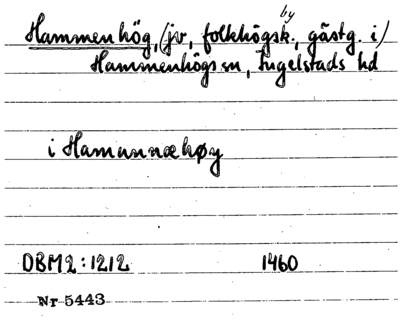 by
Hammenhög, (jv, folkhögsk., gästg. i)
Hammenhögs sn, Ingelstads hd
i Hamunnæhøy
DBM2:1212 1460
Nr 5443